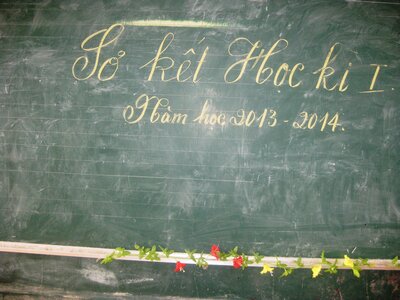 Sơ kết Học kì I
Năm học 2013 - 2014.